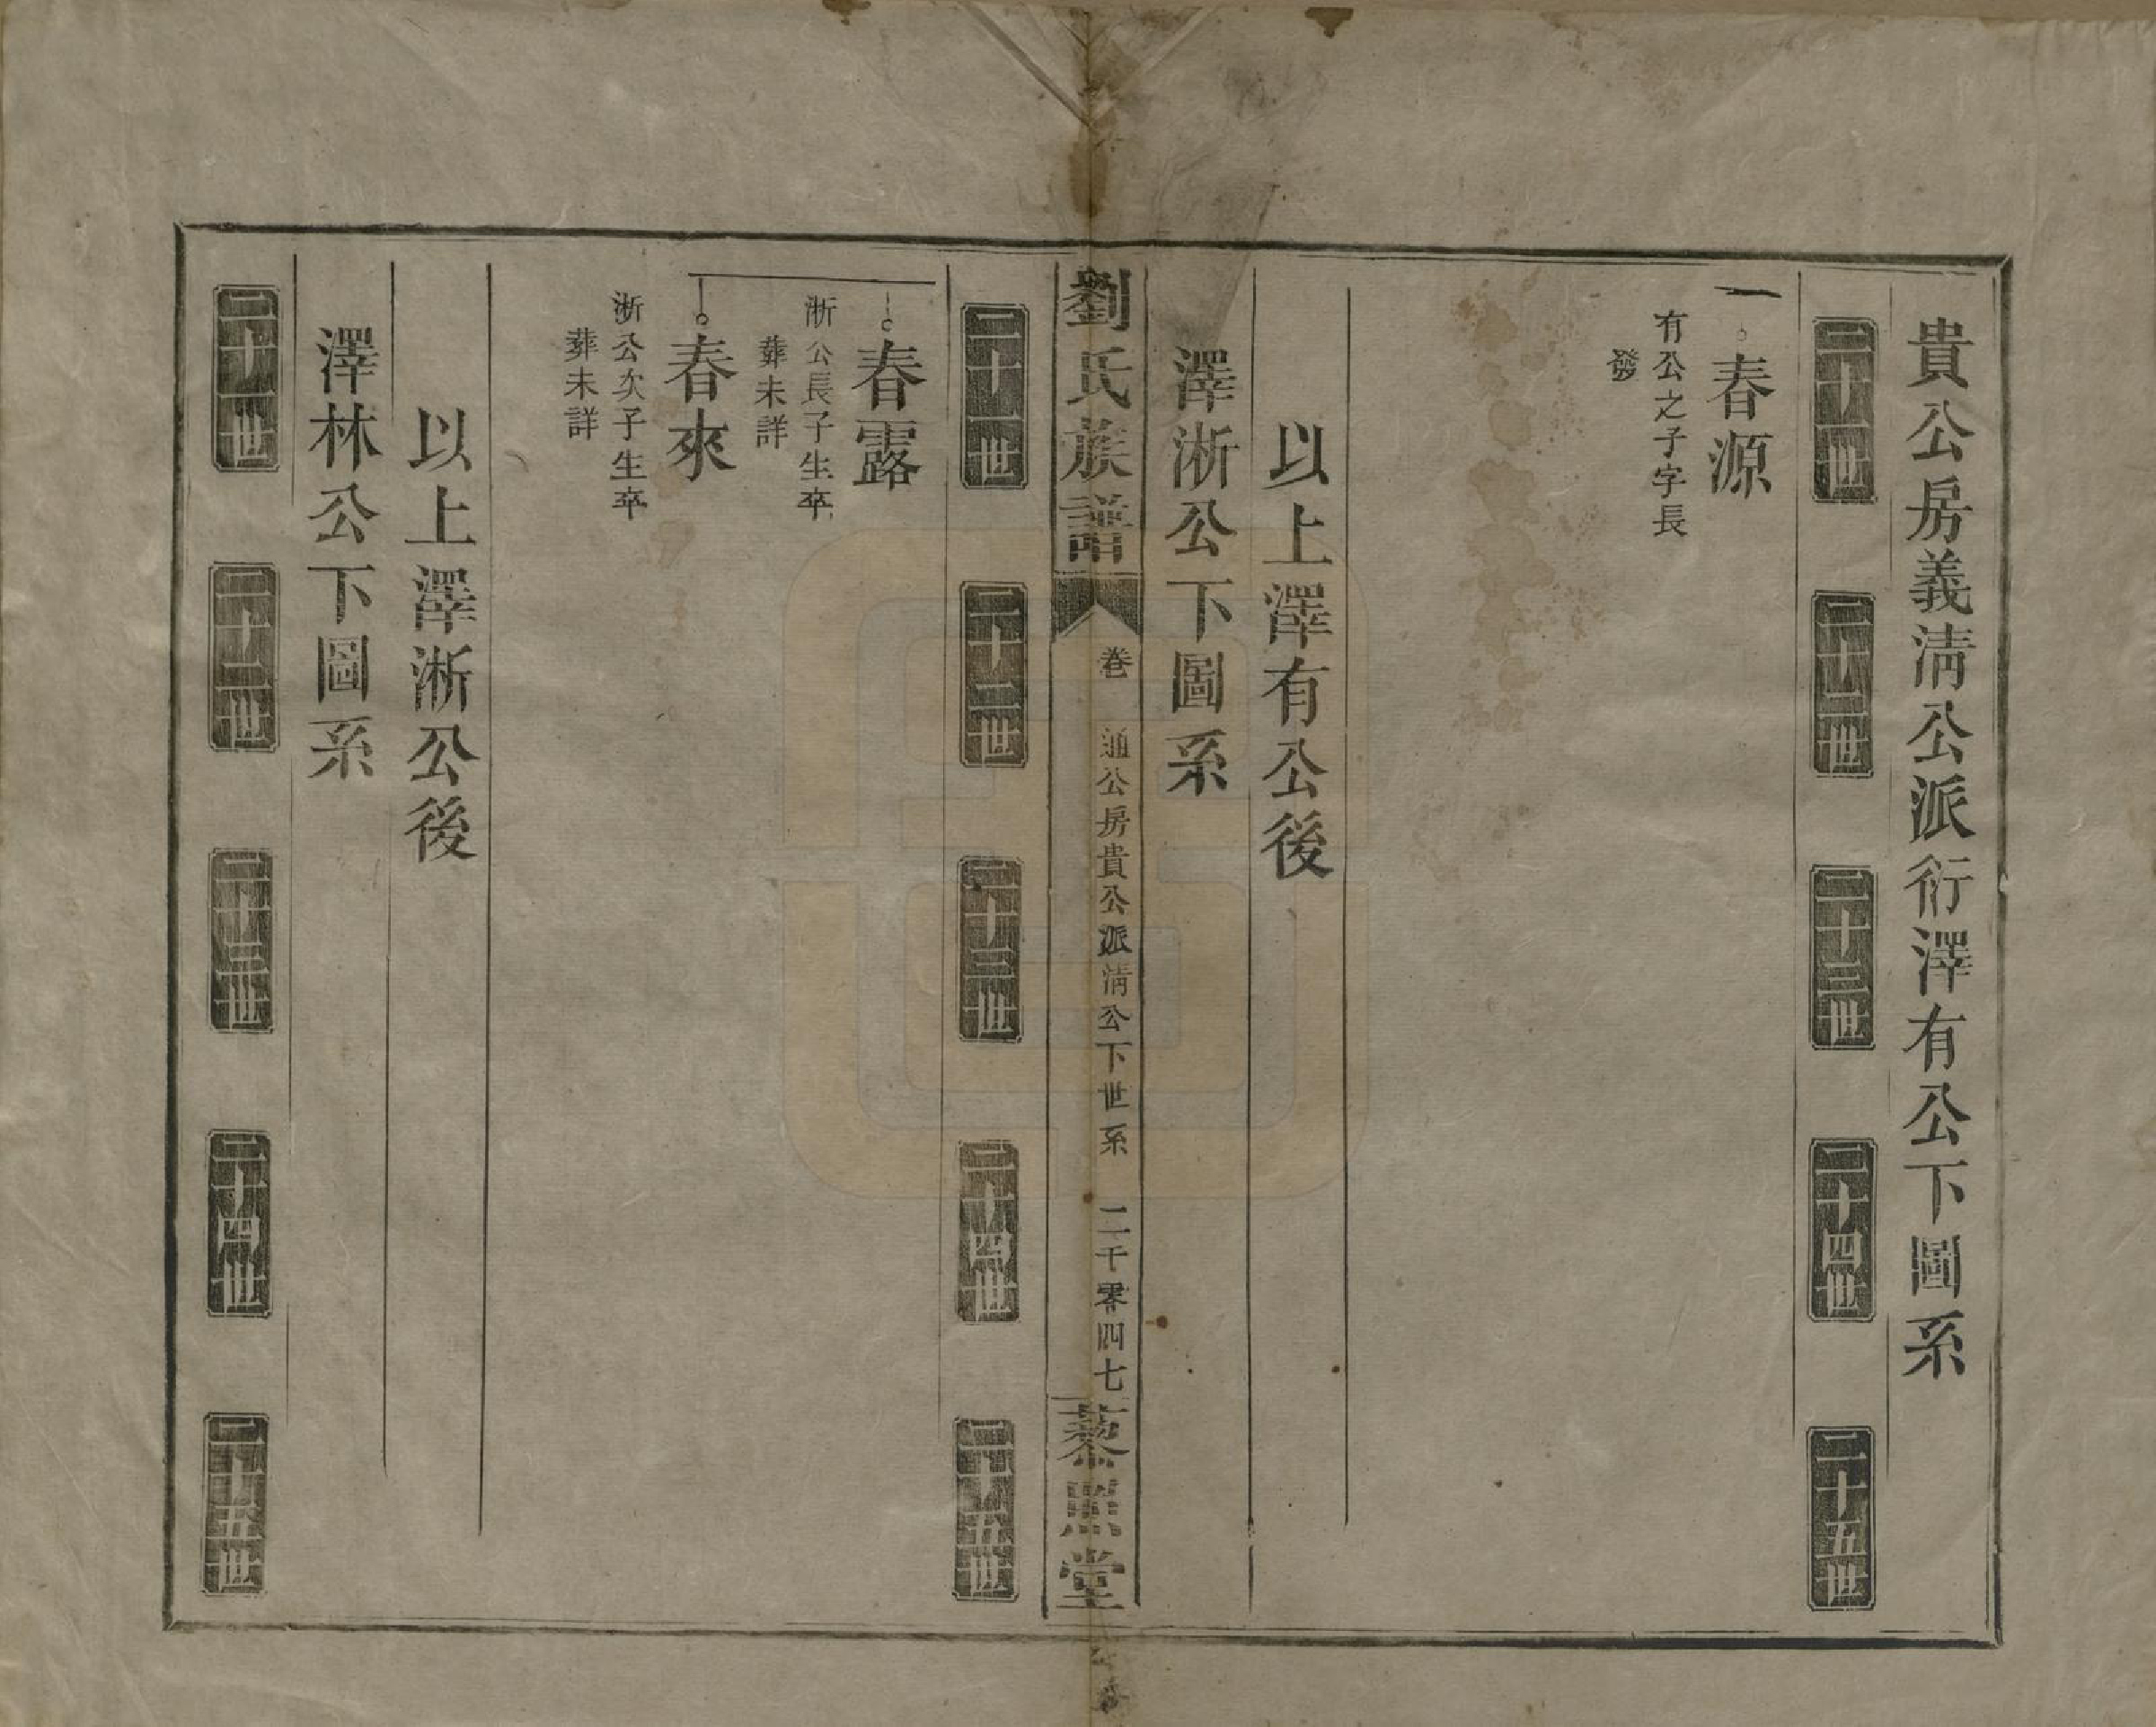 貴公房義清公派衍澤有公下圖系
二十一世
二十二世
二十三世
二十四世
二十五世
春源
有公之子字長
發
以上澤有公後
澤淅公下圖系
劉氏族譜
卷
通公房貴公派清公下世系
二千零四七
藜照堂
二十一世
二十二世
二十三世
二十四世
二十五世
春露
淅公長子生卒
葬未詳
春來
淅公次子生卒
葬未詳
以上澤淅公後
澤林公下圖系
二十一世
二十二世
二十三世
二十四世
二十五世